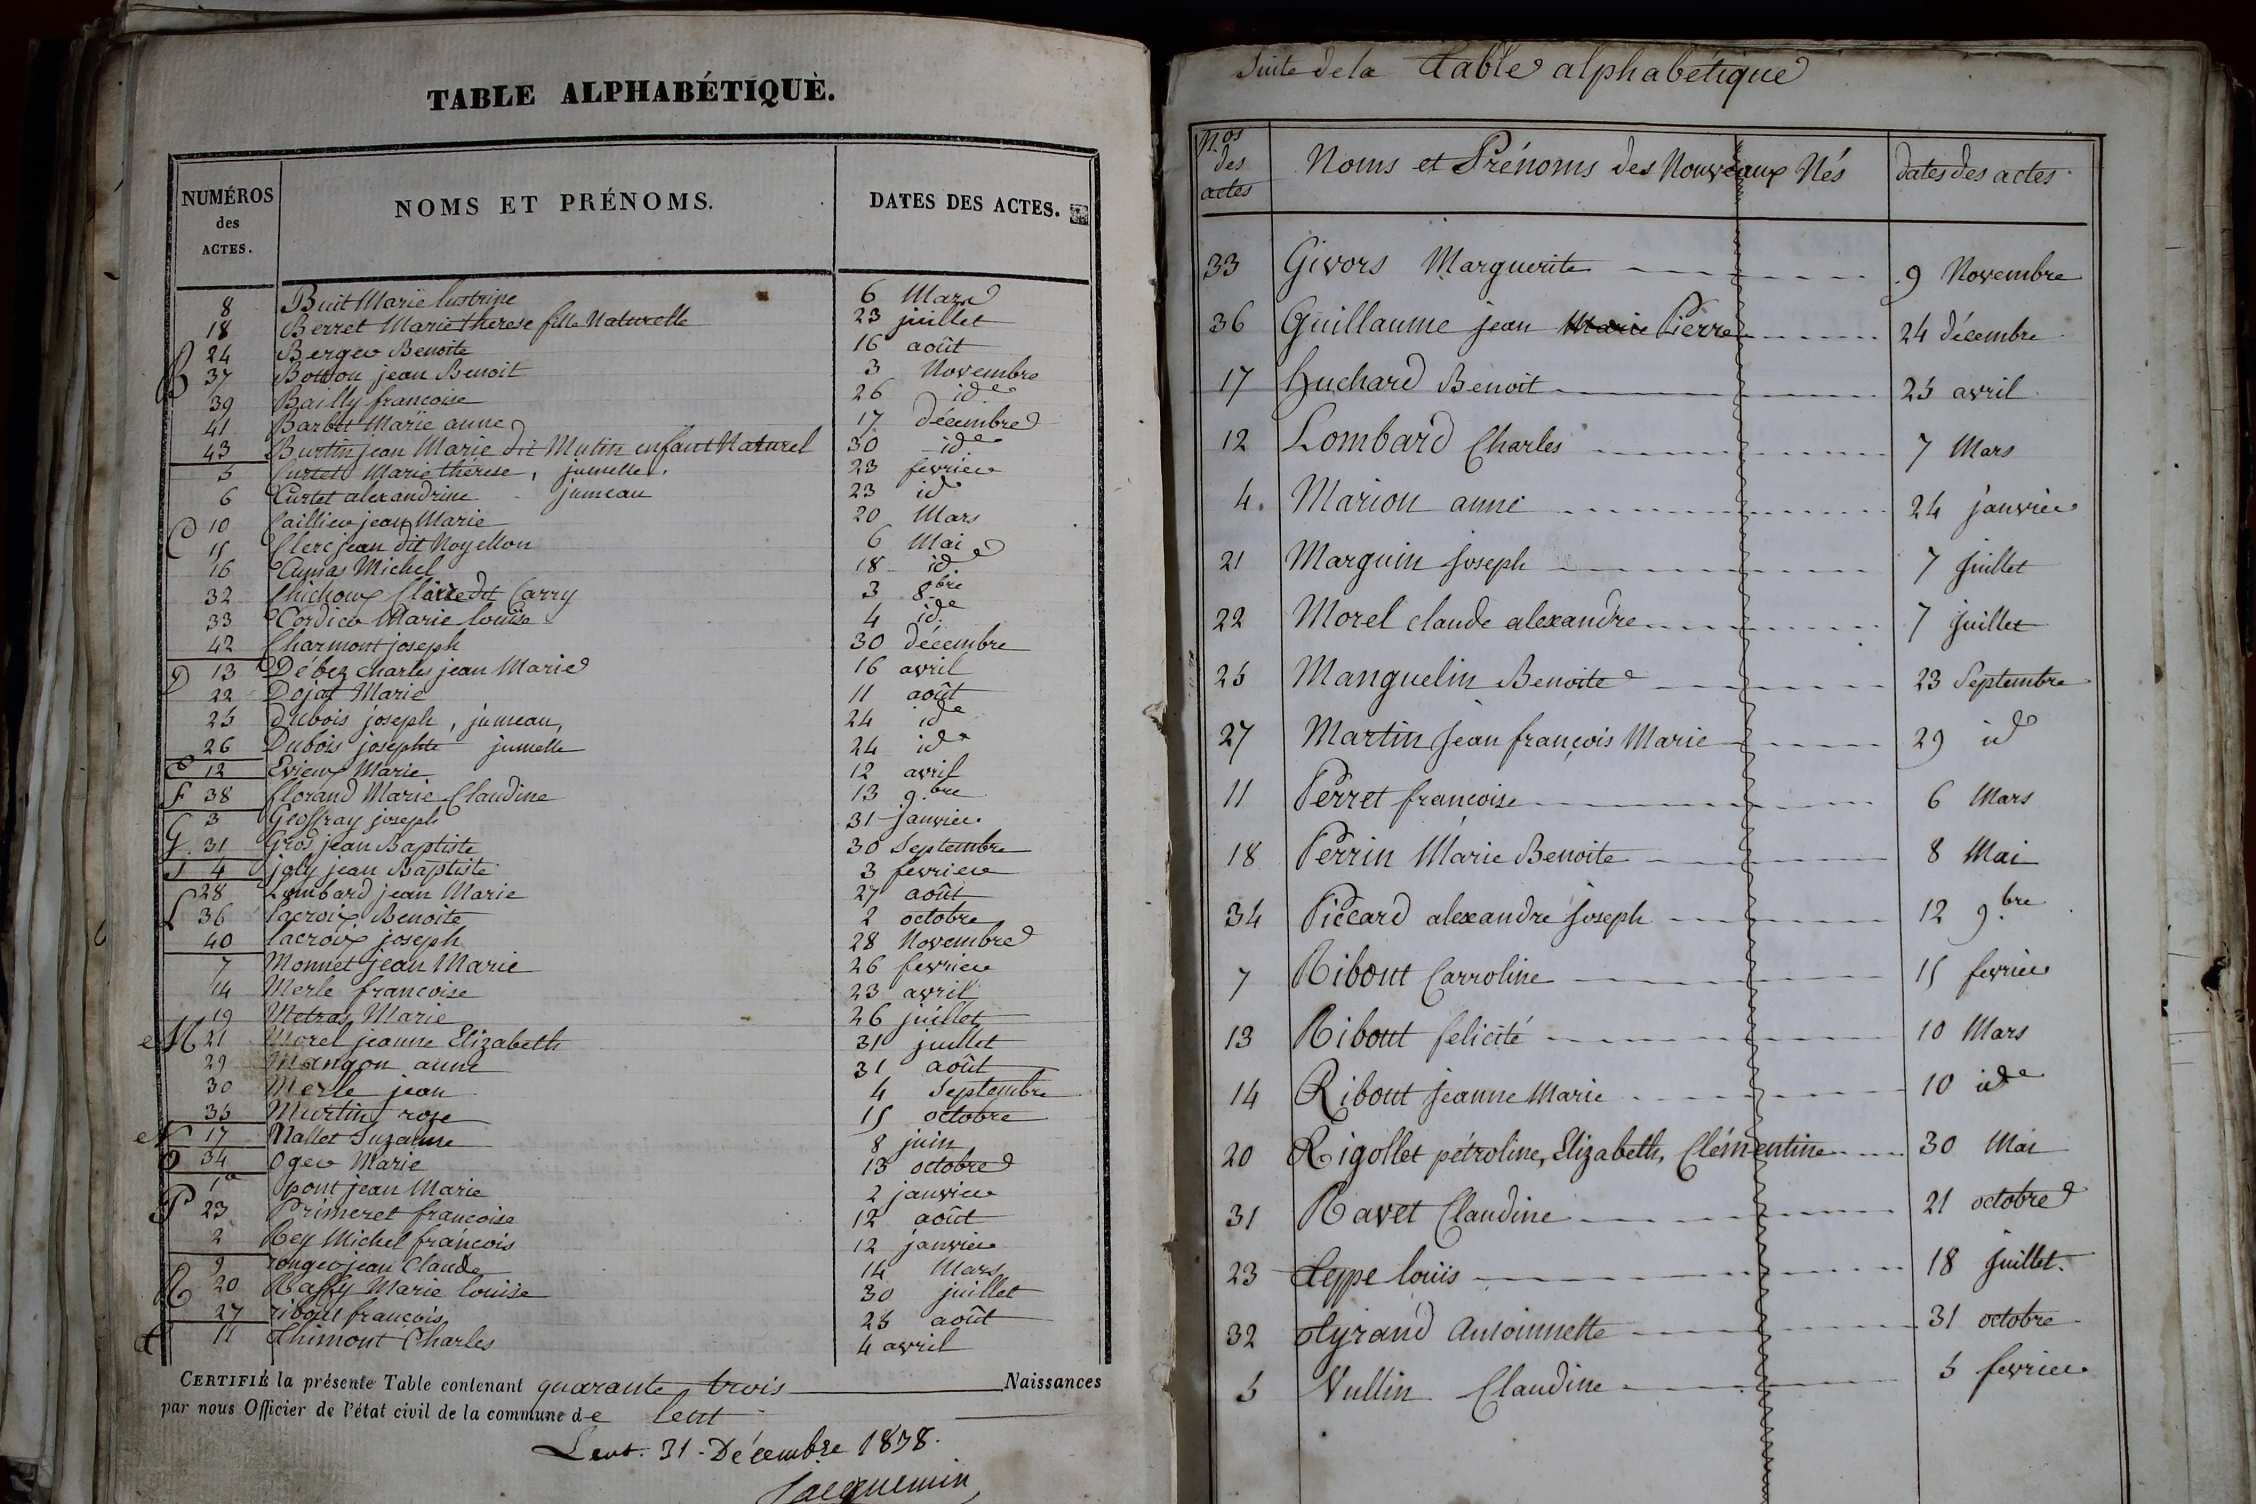 TABLE ALPHABÉTIQUE.
NUMÉROS des ACTES. NOMS ET PRÉNOMS. DATES DES ACTES.
8 Buit Marie 6 Mars
18 Berret Marie therese fille Naturelle 23 juillet
B 24 Berger Benoite 16 août
37 jean Benoit 3 Novembre
39 Bailly francoise 26 id
41 Barbet Marie anne 17 décembre
43 Burtin jean Marie dit Mutin enfant Naturel 30 id
5 Curtet Marie thérese, jumelle. 23 fevrier
6 Curtet alexandrine jumeau 23 id
C 10 Caillier jean Marie 20 Mars
15 Clerc jean dit Noyellon 6 Mai
16 Michel 18 id
32 Chichoux Claire dit Carry 3 8.bre
33 Cordier Marie louise 4 id
42 Charmont joseph 30 décembre
D 13 Débez charles jean Marie 16 avril
22 Dojat Marie 11 août
25 Dubois joseph, jumeau, 24 id
26 Dubois josephte jumelle 24 id
E 12 Evieux Marie 12 avril
F 38 florand Marie Claudine 13 9.bre
3 Geoffray joseph 31 janvier
G. 31 Gros jean Baptiste 30 Septembre
J 4 joly jean Baptiste 3 fevrier
28 Lombard jean Marie 27 août
L 36 lacroix Benoite 2 octobre
40 lacroix joseph 28 Novembre
7 Monnet jean Marie 26 fevrier
14 Merle francoise 23 avril
19 Metras Marie 26 juillet
M 21 Morel jeanne Elizabeth 31 juillet
29 Mangon anne 31 août
30 Merle jean 4 Septembre
35 Murtin roze 15 octobre
N 17 Nallet Suzanne 8 juin
O 34 Oger Marie 13 octobre
1er pont jean Marie 2 janvier
P 23 Primeret francoise 12 août
2 Rey Michel françois 12 janvier
9 ronger jean Claude 14 Mars
R 20 Raffy Marie louise 30 juillet
27 ribout francois 25 août
t 11 thimont Charles 4 avril
CERTIFIÉ la présente Table contenant quarante trois Naissances
par nous Officier de l'état civil de la commune de lent
Lent. 31 - Décembre 1838.
Jacquemin
Suite de la Table alphabétique
Nos des actes Noms et Prénoms des Nouveaux Nés dates des actes
33 Givors Marguerite 9 Novembre
36 Guillaume jean Marie Pierre 24 décembre
17 Huchard Benoit 25 avril
12 Lombard Charles 7 Mars
4. Marion anne 24 janvier
21 Marguin joseph 7 juillet
22 Morel claude alexandre 7 juillet
25 Manguelin Benoite 23 Septembre
27 Martin jean françois Marie 29 id
11 Perret françoise 6 Mars
18 Perrin Marie Benoite 8 Mai
34 Piccard alexandre joseph 12 9.bre
7 Ribout Carroline 15 fevrier
13 Ribout felicité 10 Mars
14 Ribout jeanne Marie 10 id
20 Rigollet pétroline, Elizabeth, Clémentine 30 Mai
31 Ravet Claudine 21 octobre
23 teppe louis 18 juillet.
32 tyrand Antoinnette 31 octobre
5 Vullin Claudine 5 fevrier